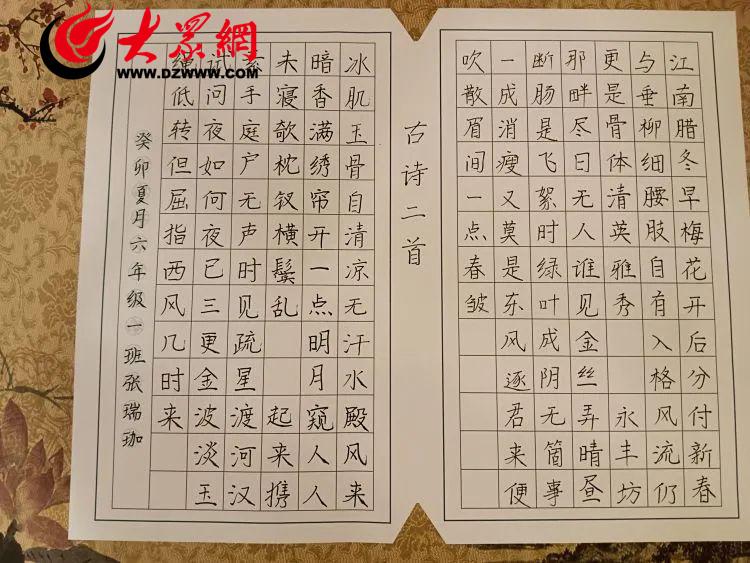 大眾網
WWW.DZWWW.COM
江南腊冬早梅花开后分付新春
与垂柳细腰肢自有入格风流仍
更是骨体清英雅秀 永丰坊
那畔尽日无人谁见金丝弄晴昼
断肠是飞絮时绿叶成阴无箇事
一成消瘦又莫是东风逐君来便
吹散眉间一点春皱
古诗二首
冰肌玉骨自清凉无汗水殿风来
暗香满绣帘开一点明月窥人人
未寝欹枕钗横鬓乱 起来携
素手庭户无声时见疏星渡河汉
试问夜如何夜已三更金波淡玉
绳低转但屈指西风几时来
癸卯夏月六年级一班张瑞珈